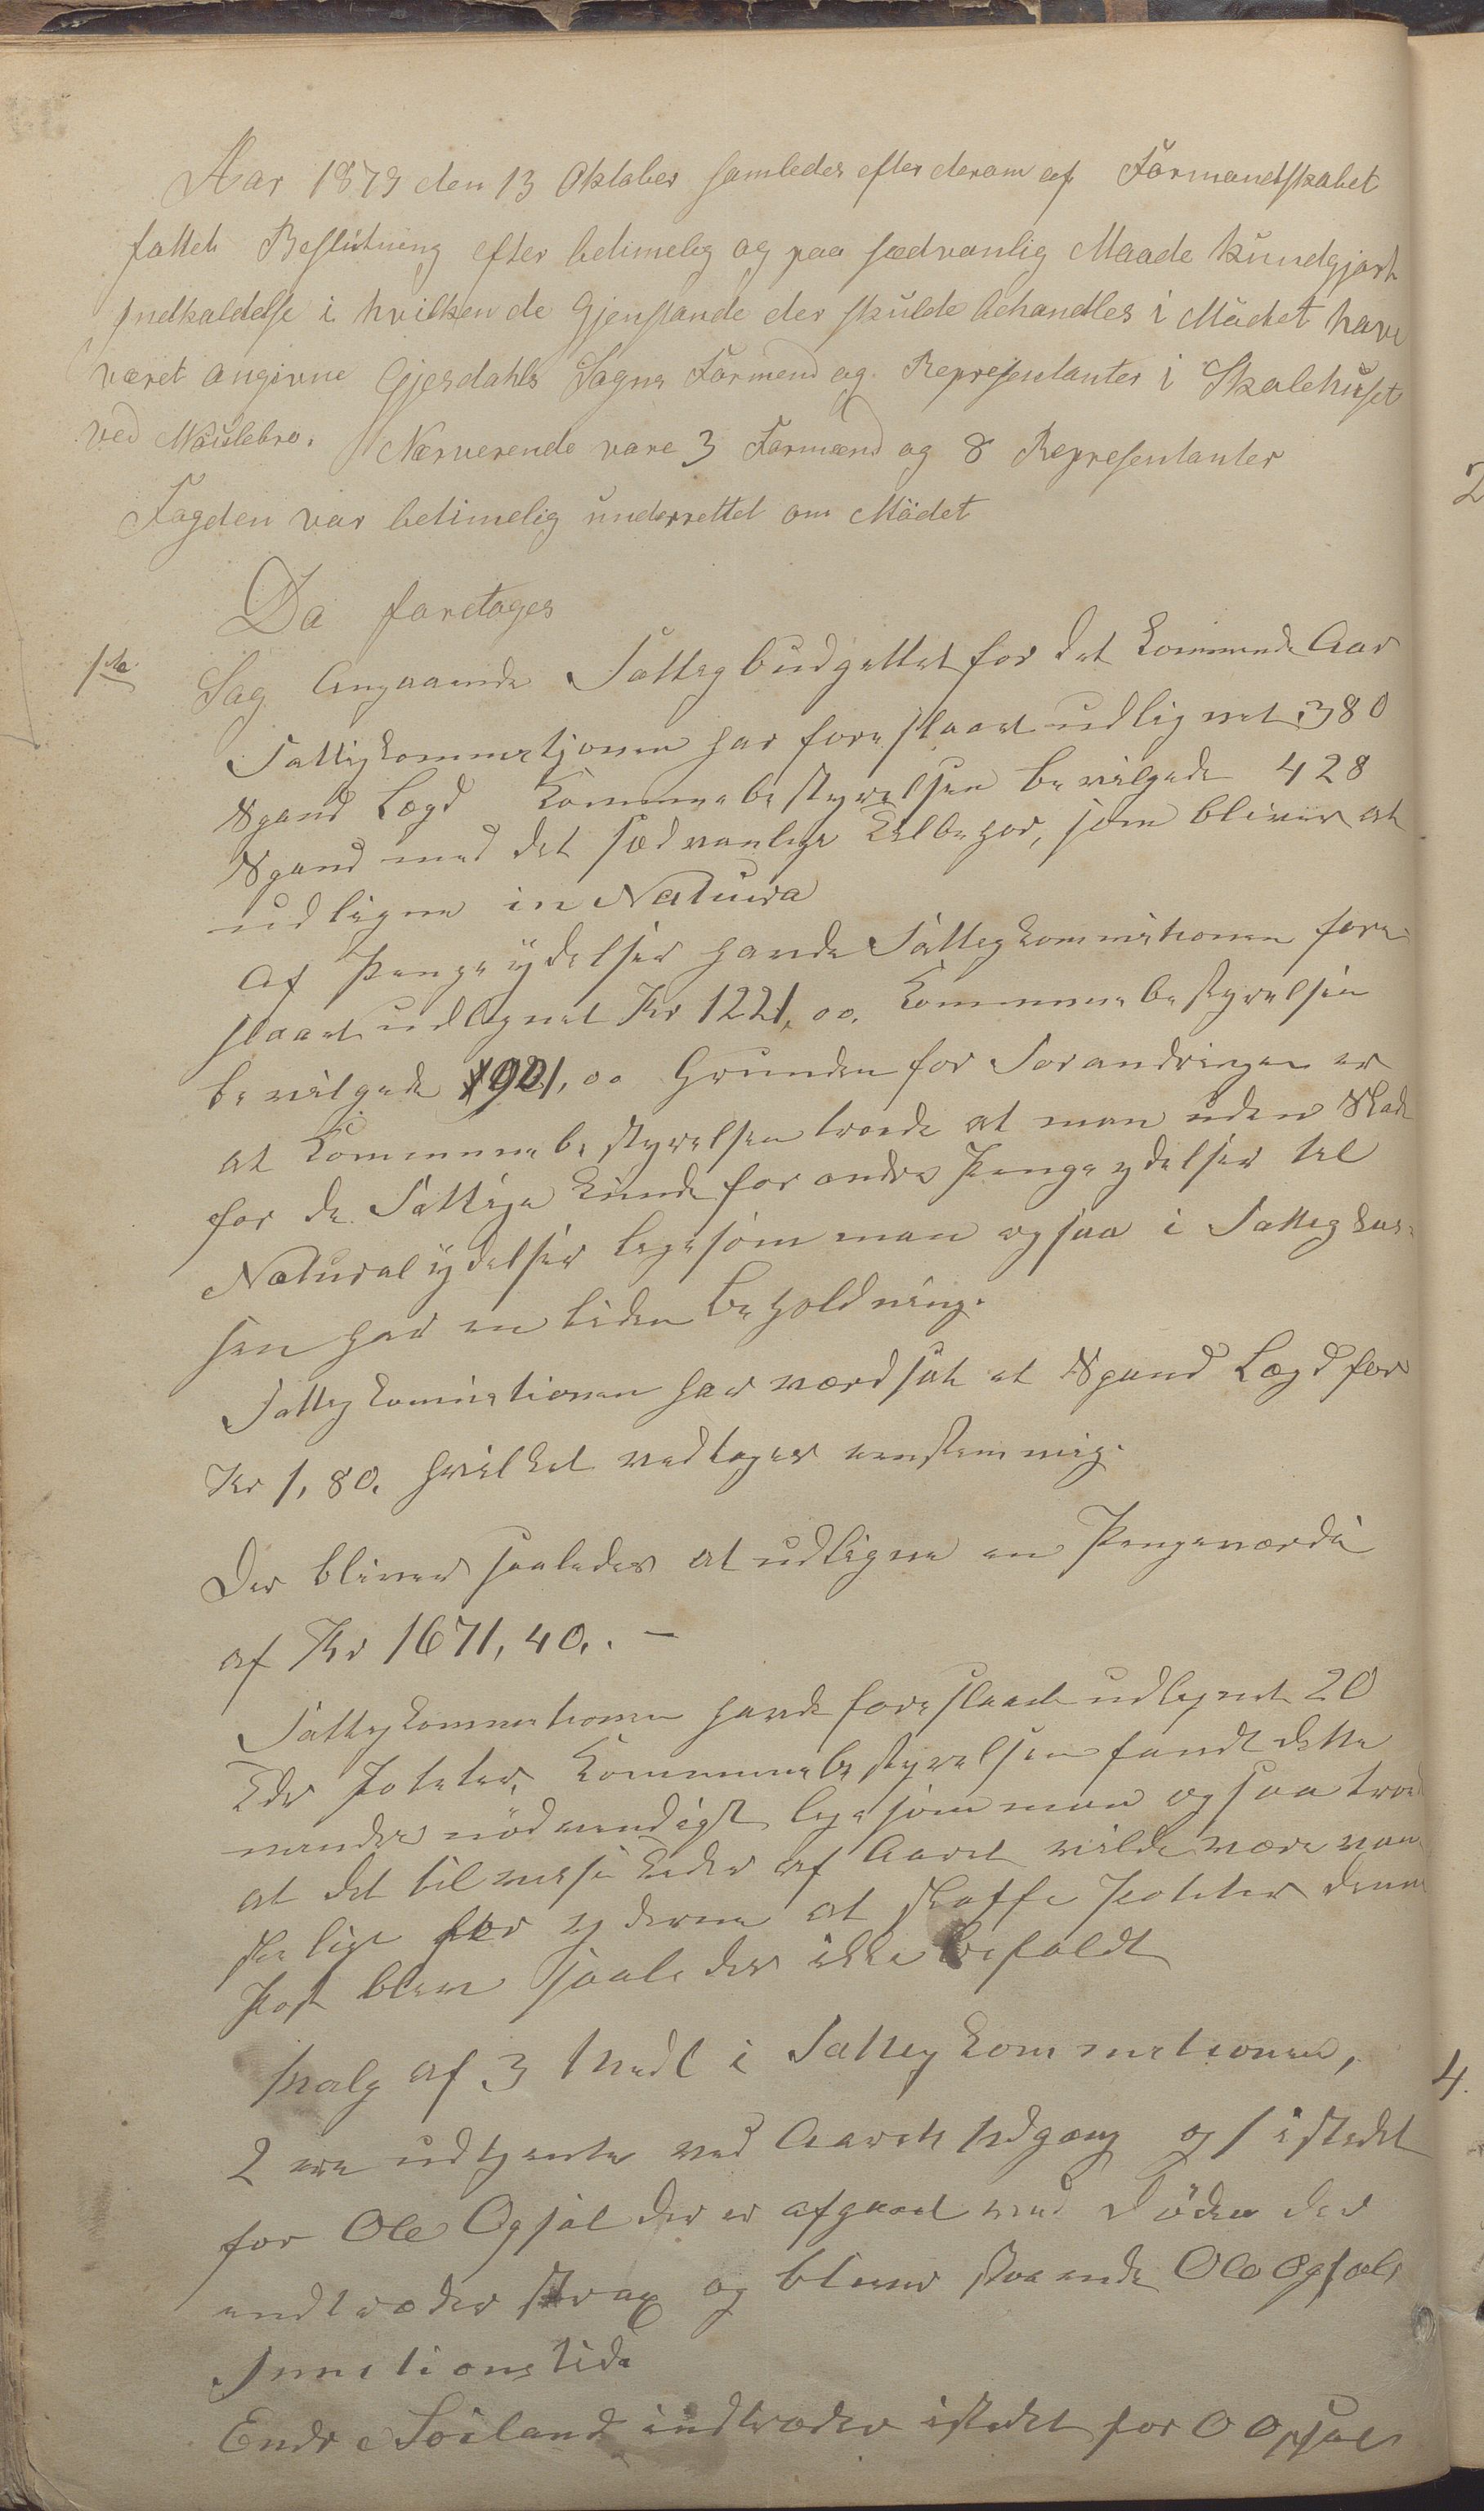 Aar 1879 den 13 Oktober samledes efter derom af Formandskabet
fattet Beslutning efter betimelig og paa sædvanlig Maade kundgjort
Indkaldelse i hvilken de Gjenstande der skulde behandles i Mödet have
været angivne Gjesdahls Sogns Formend og Representanter i Skolehuset
ved Nöulebro. Nærverende vare 3 Formænd og 8 Representanter
Fogden var betimelig underrettet om Mödet
Da foretoges
1ste Sag Angaaende Fattigbudgettet for det kommende Aar
Fattigkommitjonen har foreslaaet udlignet 380
Spand Lægd Kommunebestyrelsen bevilgede 428
Spand med det sædvanlige Tilbehør, som bliver at
udligne in Natura
Af Pengeydelser havde Fattigkommitionen fore-
slaaet udlignet Kr 1221,00. Kommunebestyrelsen
bevilgede 901,00 Grunden for Forandringen er
at Kommunebestyrelsen troede at man uden Skade
for de Fattige kunde forandre Pengeydelser til
Naturalydelser ligesom man ogsaa i Fattigkas-
sen har en liden Beholdning.
Fattigkomitionen har værdsat et Spand Lægd for
Kr 1,80. hvilket vedtoges enstemmig.
Der bliver saaledes at udligne en Pengeværdi
af Kr 1671,40. –
Fattigkommitionen havde foreslaaet udlignet 20
Tdr Poteter, Kommunebestyrelsen fandt dette
unödvendigt ligesom man ogsaa troede
at det til visse Tider af Aaret vilde være van-
skeligt for yderne at skaffe Poteter denne
Post blev saaledes ikke befoldt
Valg af 3 Medl i Fattigkommitionen,
2 ere udtjente ved Aarets Udgang og 1 istedet
for Ole Ogsal der er afgaaet ved Döden der
indtræder strax og bliver staaende Ole Ogsals
Funktionstid
Endre Soiland indtræder istedet for O Opsal
2
4.